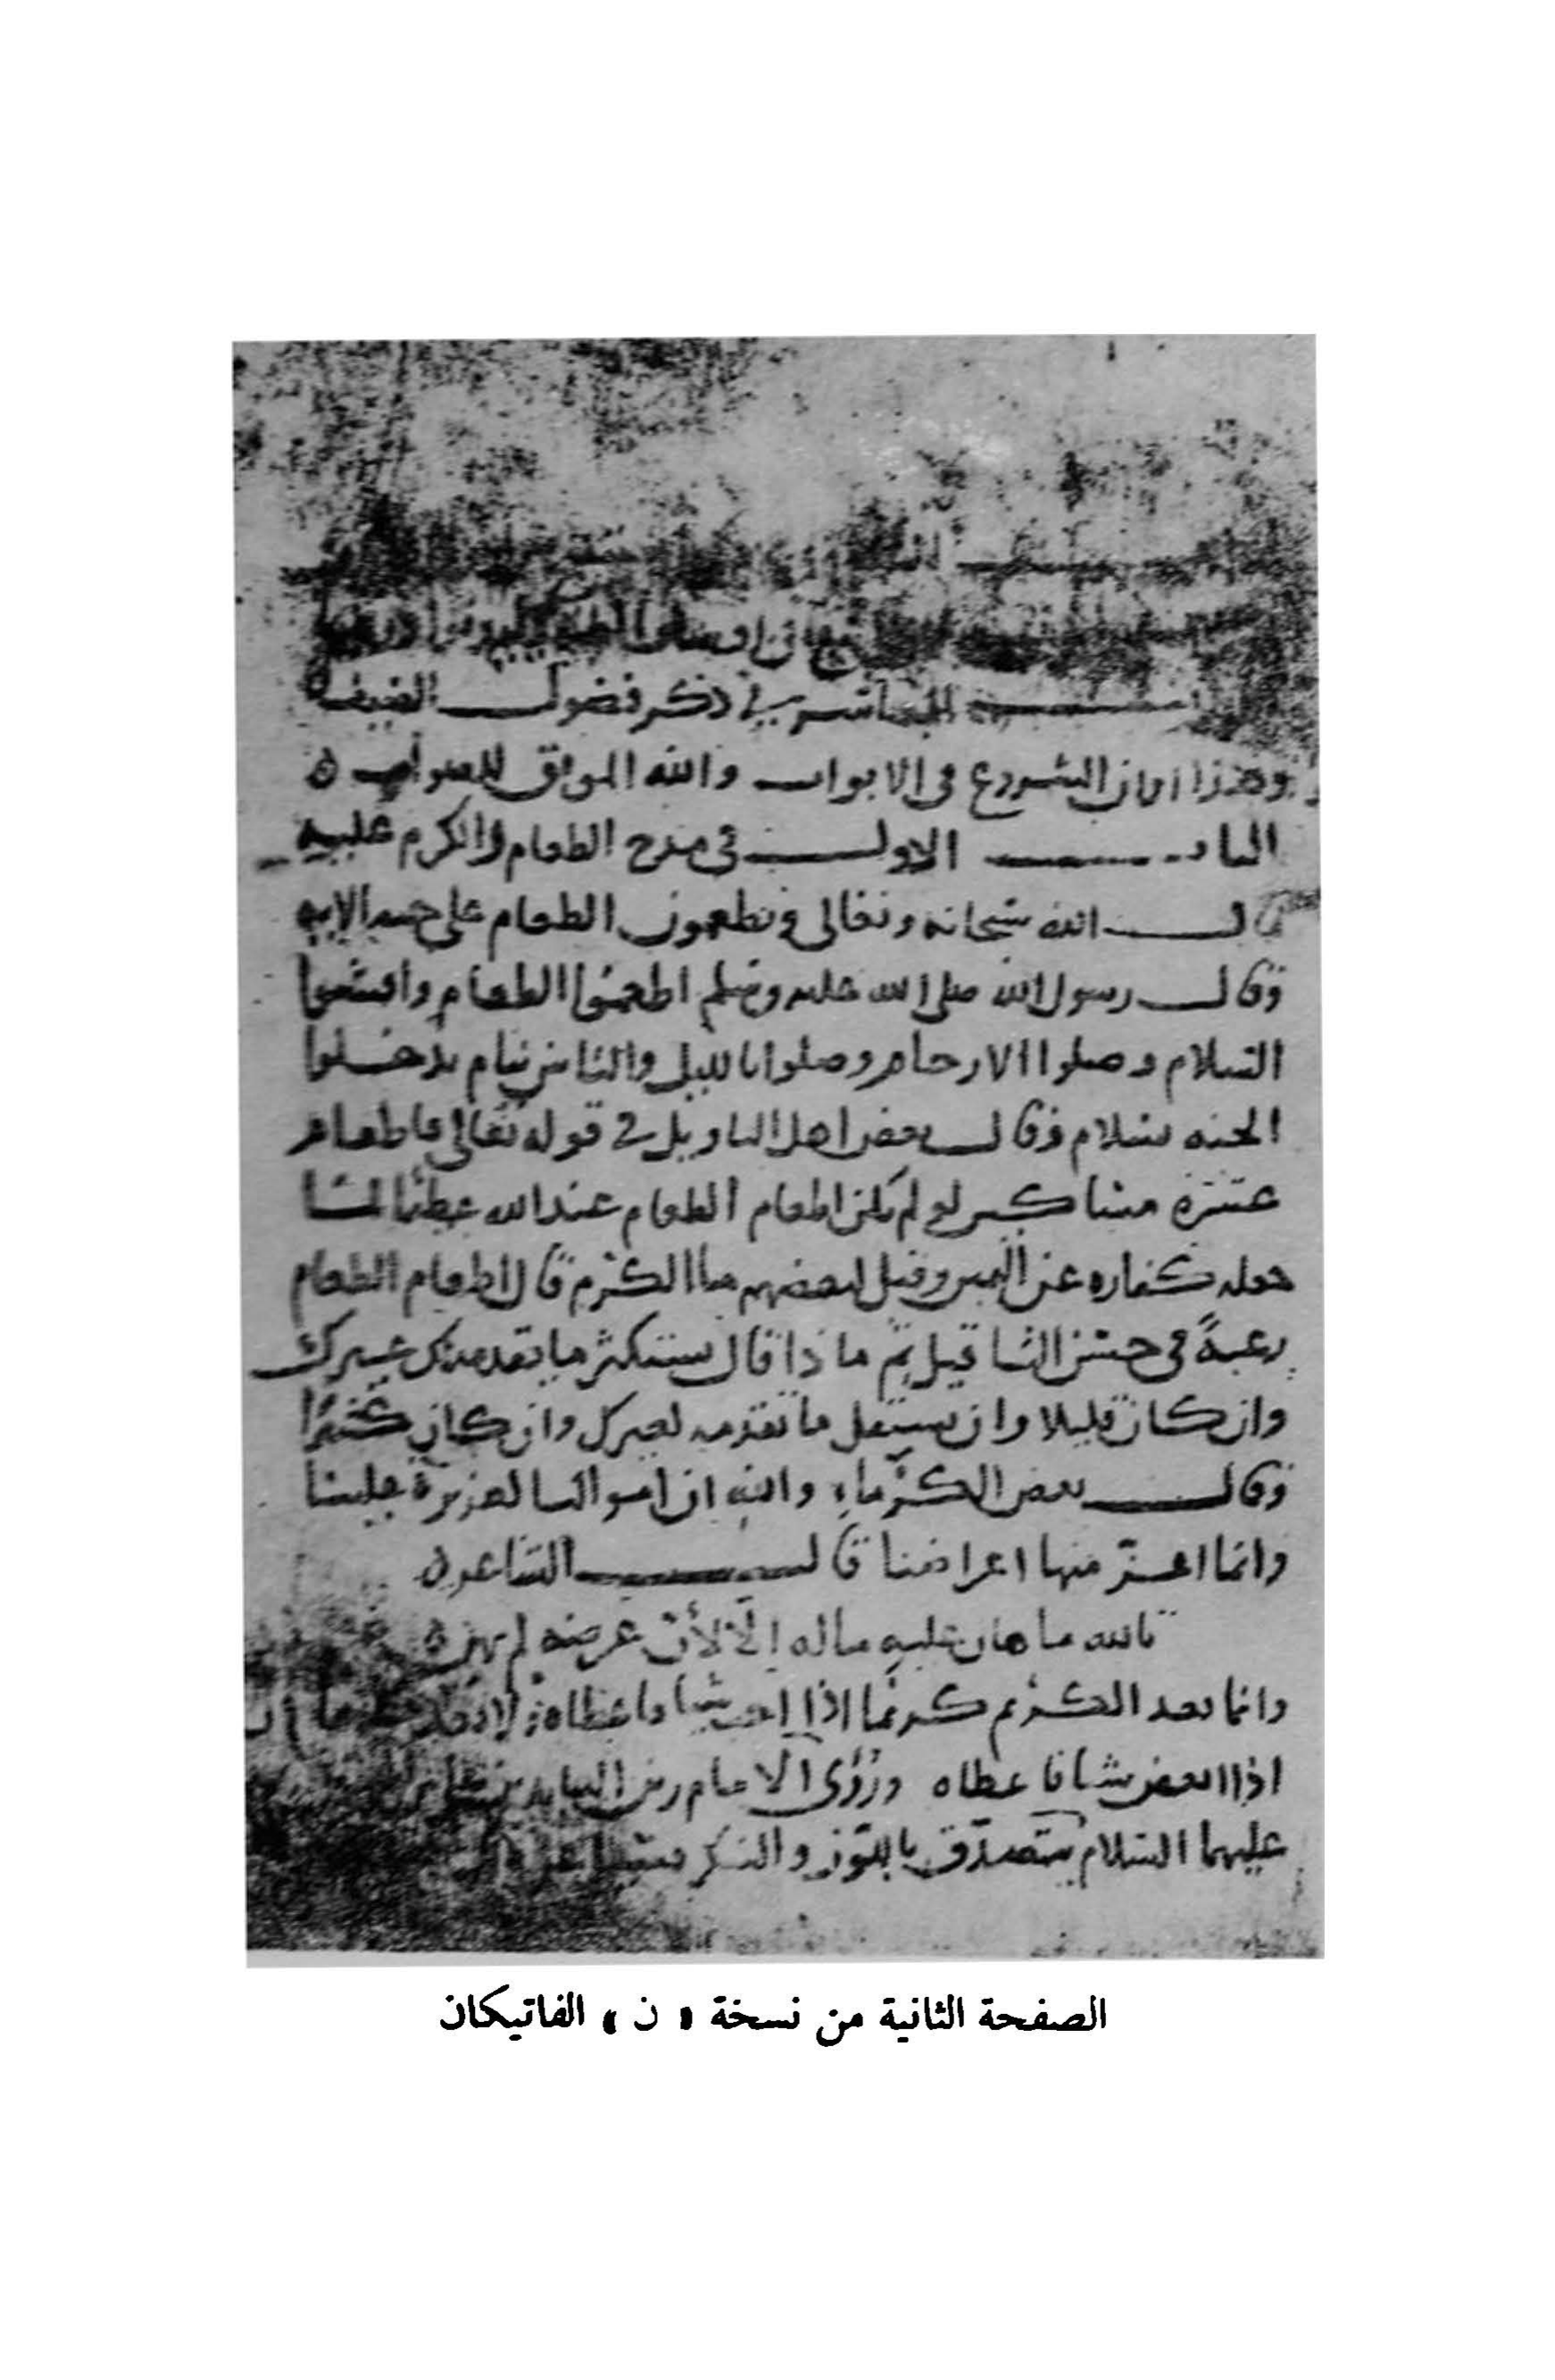 في ذكر فضول الضيف
وهذا اوان الشروع في الابواب والله الموفق للصواب
الباب الاول في مدح الطعام والكرم عليه
قال الله سبحانه وتعالى ويطعمون الطعام على حبه الايه
وقال رسول الله صلى الله عليه وسلم اطعموا الطعام وافشوا
السلام وصلوا الارحام وصلوا بالليل والناس نيام تدخلوا
الجنه بسلام وقال بعض اهل التاويل في قوله تعالى فاطعام
عشرة مساكين لو لم يكن اطعام الطعام عند الله عظيما لما
جعله كفاره عن اليمين وقيل لبعضهم ما الكرم قال اطعام الطعام
رغبة في حسن الثنا قيل ثم ماذا قال تستكثر ما يقدمه لك غيرك
وان كان قليلا وان تستقل ما تقدمه لغيرك وان كان كثيرا
وقال بعض الكرماء والله ان اموالنا لعزيزة علينا
وانما اعز منها اعراضنا قال الشاعر
تالله ما هان عليه ماله الا لأن عرضه لم يهن
وانما يعد الكريم كريما اذا احب شيا واعطاه لا
اذا ابغض شيا فاعطاه ورؤى الامام زين العابدين
عليهما السلام يتصدق باللوز والسكر
الصفحة الثانية من نسخة « ن » الفاتيكان